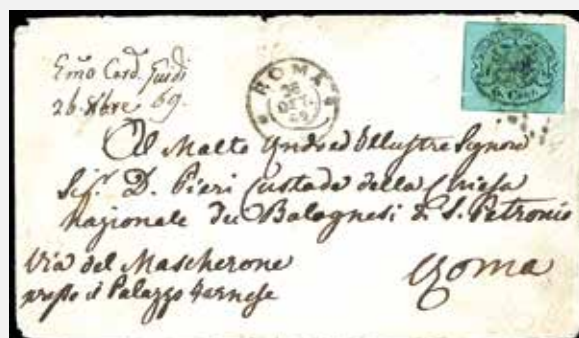 Emo Card. Guidi
26. 8bre 69.
ROMA
26
OTT.
69
Al Molto Revdo ed Illustre Signore
Sig. D. Pieri Custode della Chiesa
Nazionale dei Bolognesi di S. Petronio
Via del Mascherone
presso il Palazzo Farnese
Roma